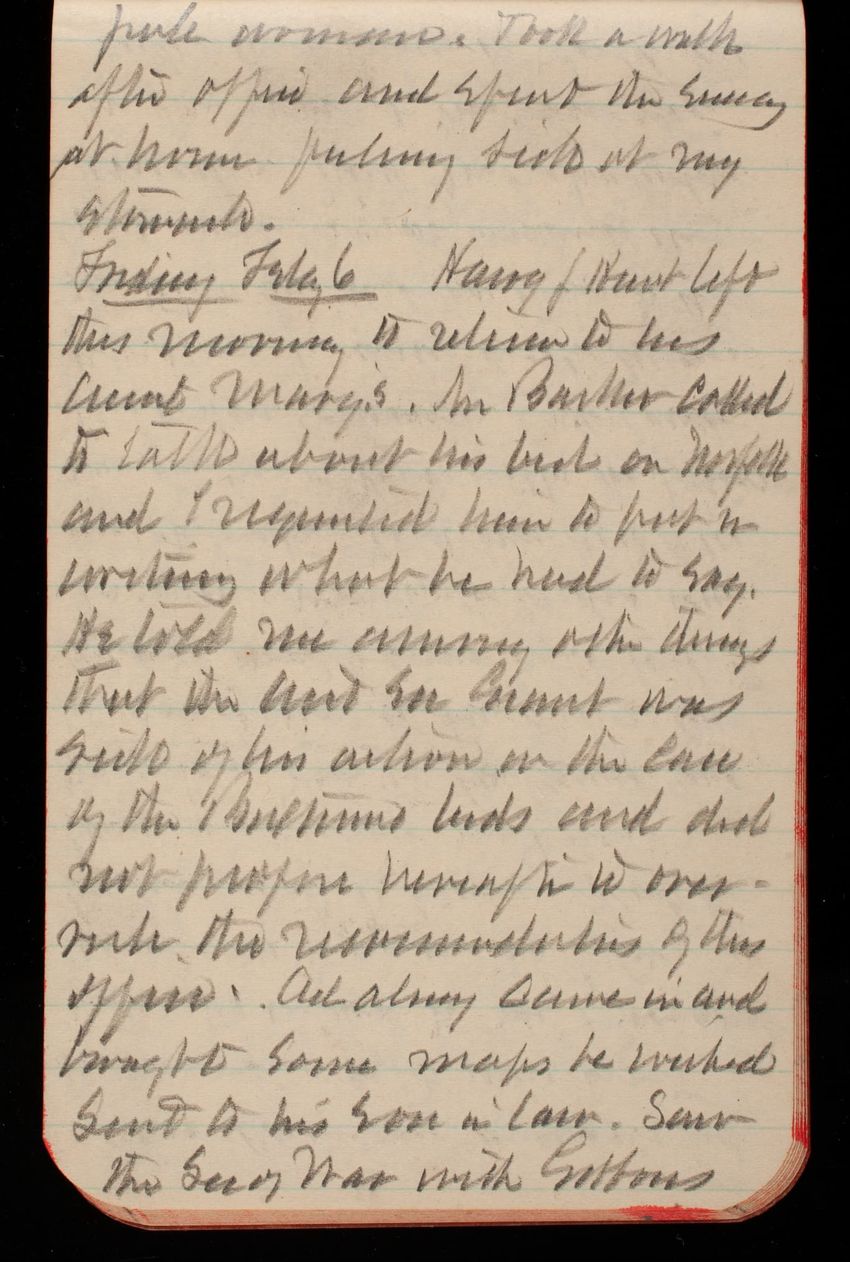 woman. Took a walk
after office and spent the evening
at home feeling sick at my
stomach.
Friday Feby 6 Harry & Hunt left
this morning to return to his
Aunt Mary's. Mr Barker called
to talk about his bid on Norfolk
and I requested him to put in
writing what he had to say.
He told me among other things
that the Asst Sec Grant was
sick of his action in the case
of the bids and did
not propose hereafter to over-
rule the recommendations of this
office. came in and
brought some maps he wished
sent to his son in law. Saw
the Sec of War with Gibbons